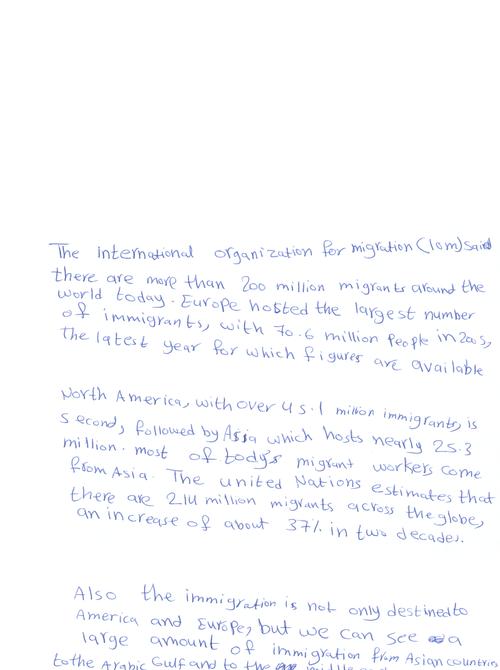 The International organization for migration (Iom) said
there are more than 200 million migrants around the
world today. Europe hosted the largest number
of immigrants, with 70.6 million People in 2005,
the latest year for which figures are available
North America, with over 45.1 million immigrants, is
second, followed by Asia which hosts nearly 25.3
million. most of tody's migrant workers come
from Asia. The united Nations estimates that
there are 214 million migrants across the globe,
an increase of about 37% in two decades.
Also the immigration is not only destined to
America and Europe, but we can see a
large amount of immigration from Asian countries
to the Arabic Gulf and to the middle